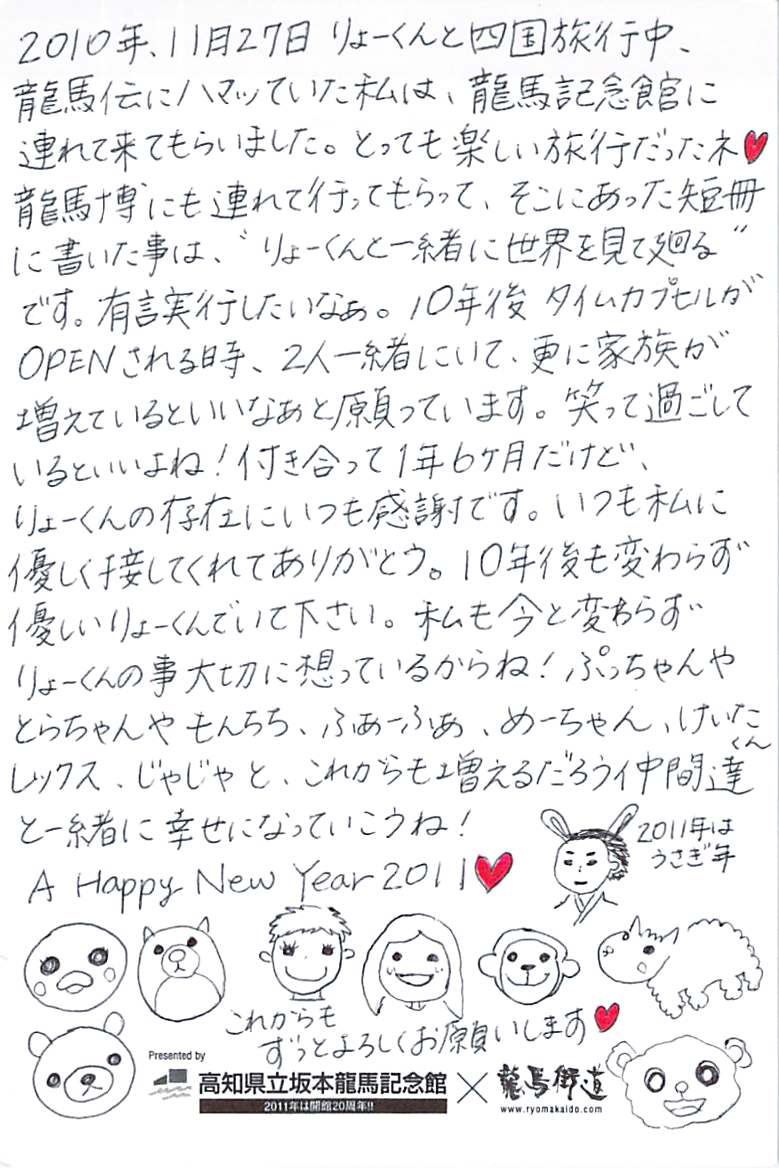 2010年、11月27日 りょーくんと四国旅行中、
龍馬伝にハマッていた私は、龍馬記念館に
連れて来てもらいました。とっても楽しい旅行だったネ♥
龍馬博にも連れて行ってもらって、そこにあった短冊
に書いた事は、〝りょーくんと一緒に世界を見て廻る〟
です。有言実行したいなぁ。10年後 タイムカプセルが
OPENされる時、2人一緒にいて、更に家族が
増えているといいなあと願っています。笑って過ごして
いるといいよね!付き合って1年6ヶ月だけど、
りょーくんの存在にいつも感謝です。いつも私に
優しく接してくれてありがとう。10年後も変わらず
優しいりょーくんでいて下さい。私も今と変わらず
りょーくんの事大切に想っているからね!ぷっちゃんや
とらちゃんや もんちち、ふぁーふぁ、めーちゃん、けいたくん
レックス、じゃじゃと、これからも増えるだろう仲間達
と一緒に幸せになっていこうね!
A Happy New Year 2011♥
2011年は
うさぎ年
これからも
ずっとよろしくお願いします♥
Presented by
高知県立坂本龍馬記念館 × 龍馬街道
2011年は開館20周年!!
www.ryomakaido.com